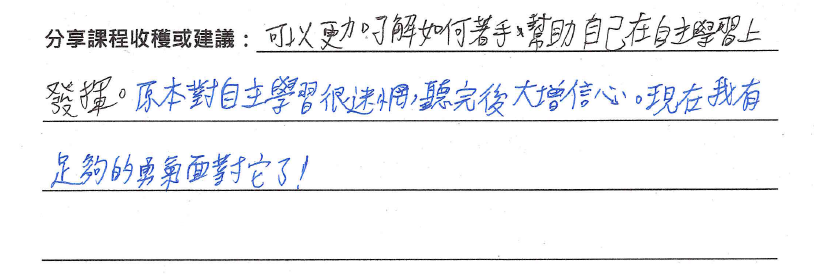 分享課程收穫或建議：可以更加了解如何著手，幫助自己在自主學習上
發揮。原本對自主學習很迷惘，聽完後大增信心。現在我有
足夠的勇氣面對它了！